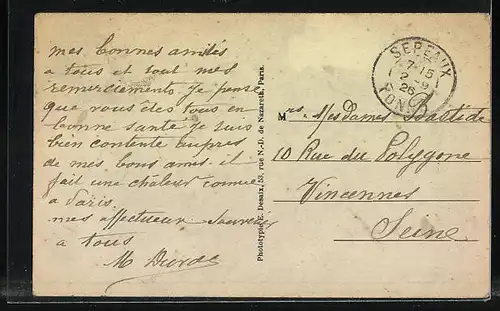 mes bonnes amitiés
a tous et tout mes
remerciements. Je pense
que vous êtes tous en
bonne santé je suis
bien contente aupres
de mes bons amis. il
fait une chaleur comme
a Paris.
mes affectueux Souvenirs
a tous
M
Phototypie E. Desaix, 53, rue N.-D. de Nazareth, Paris.
SEPEAUX
7-15
2-9
26
YONNE
Mrs Mesdames Bastide
10 Rue du Polygone
Vincennes
Seine